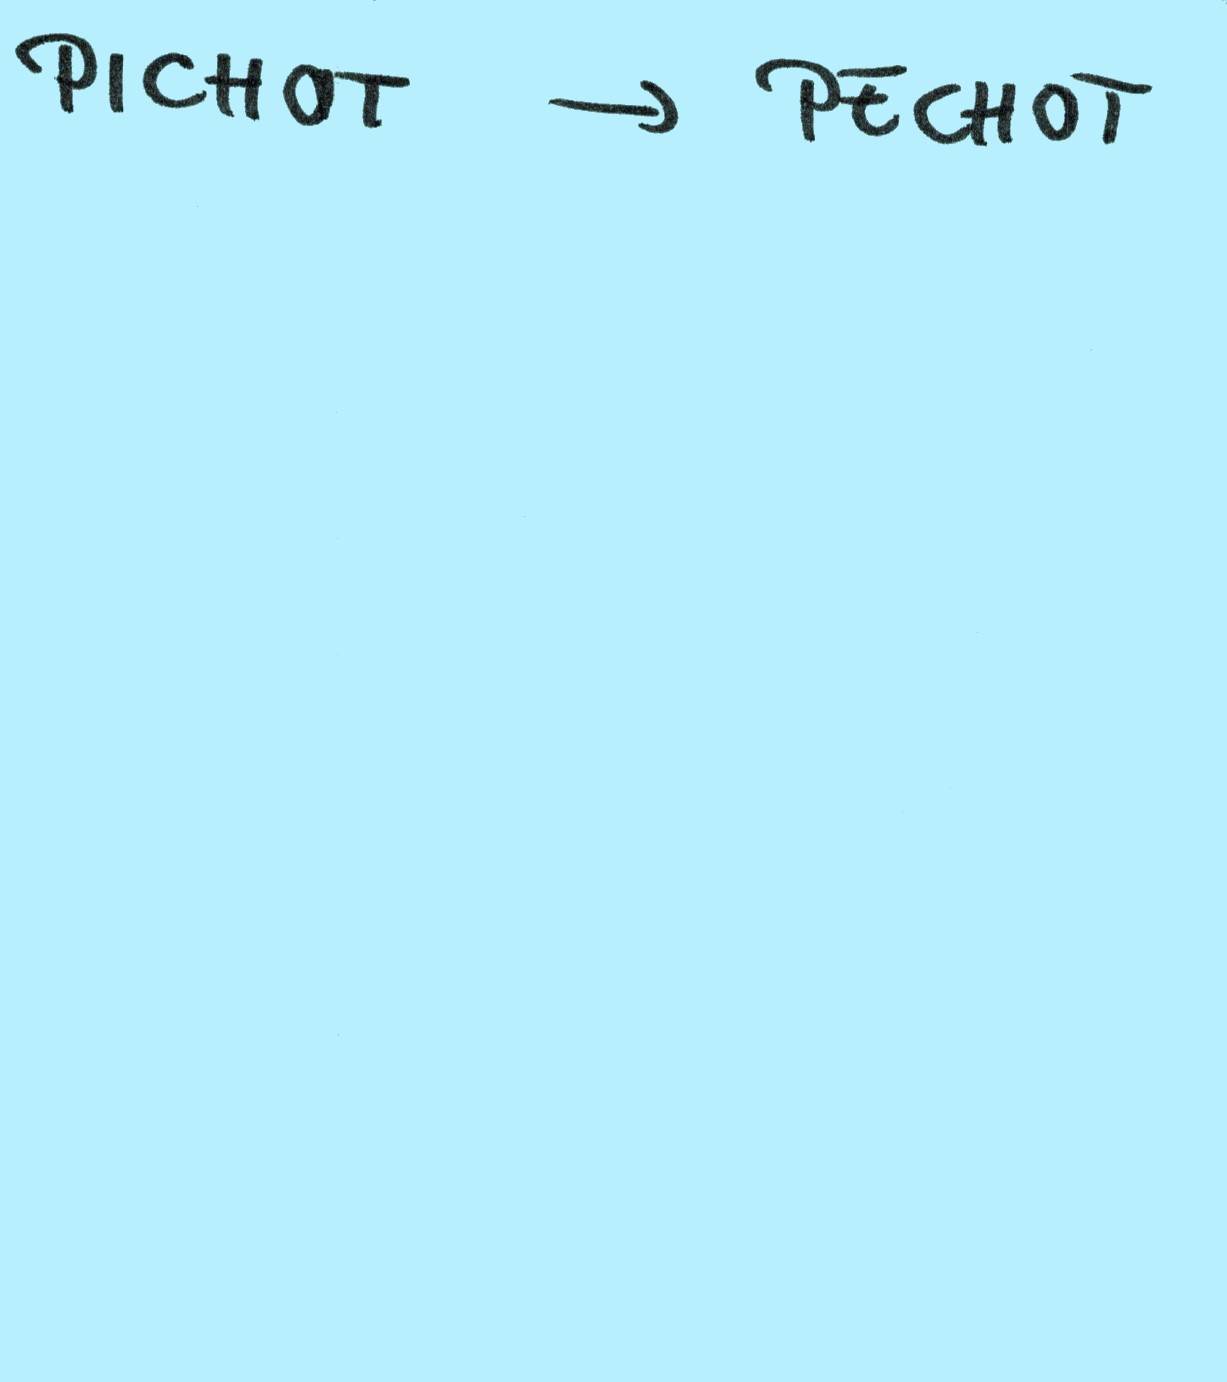 PICHOT → PECHOT